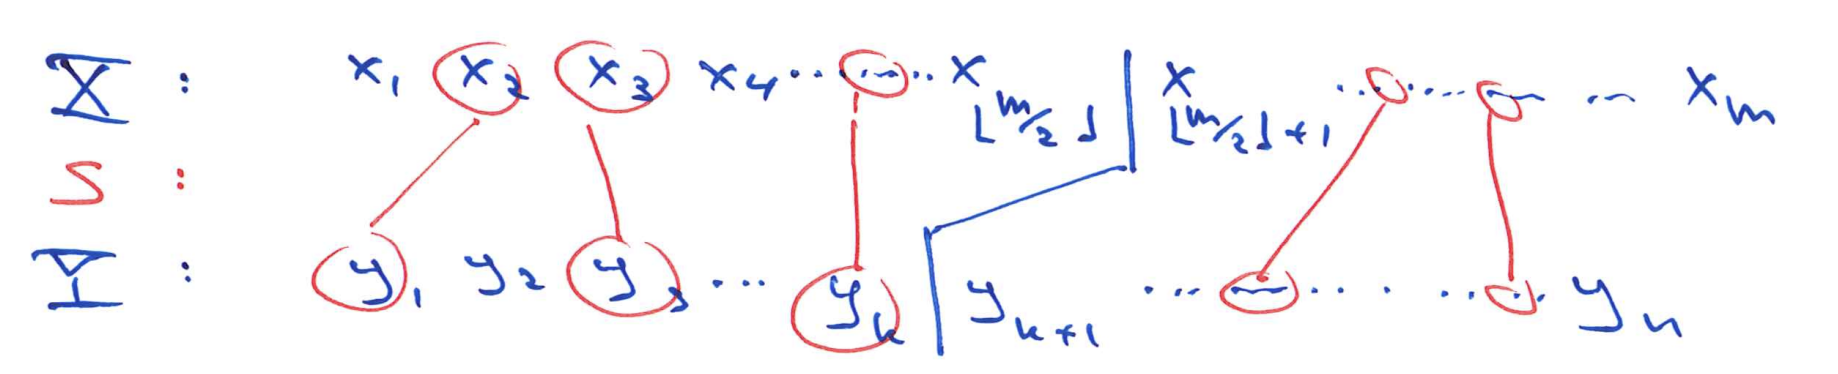 X : x₁ x₂ x₃ x₄ ... ... x⌊m/2⌋ x⌊m/2⌋+1 ... ... xₘ
S :
Y : y₁ y₂ y₃ ... yₖ yₖ₊₁ ... ... ... yₙ